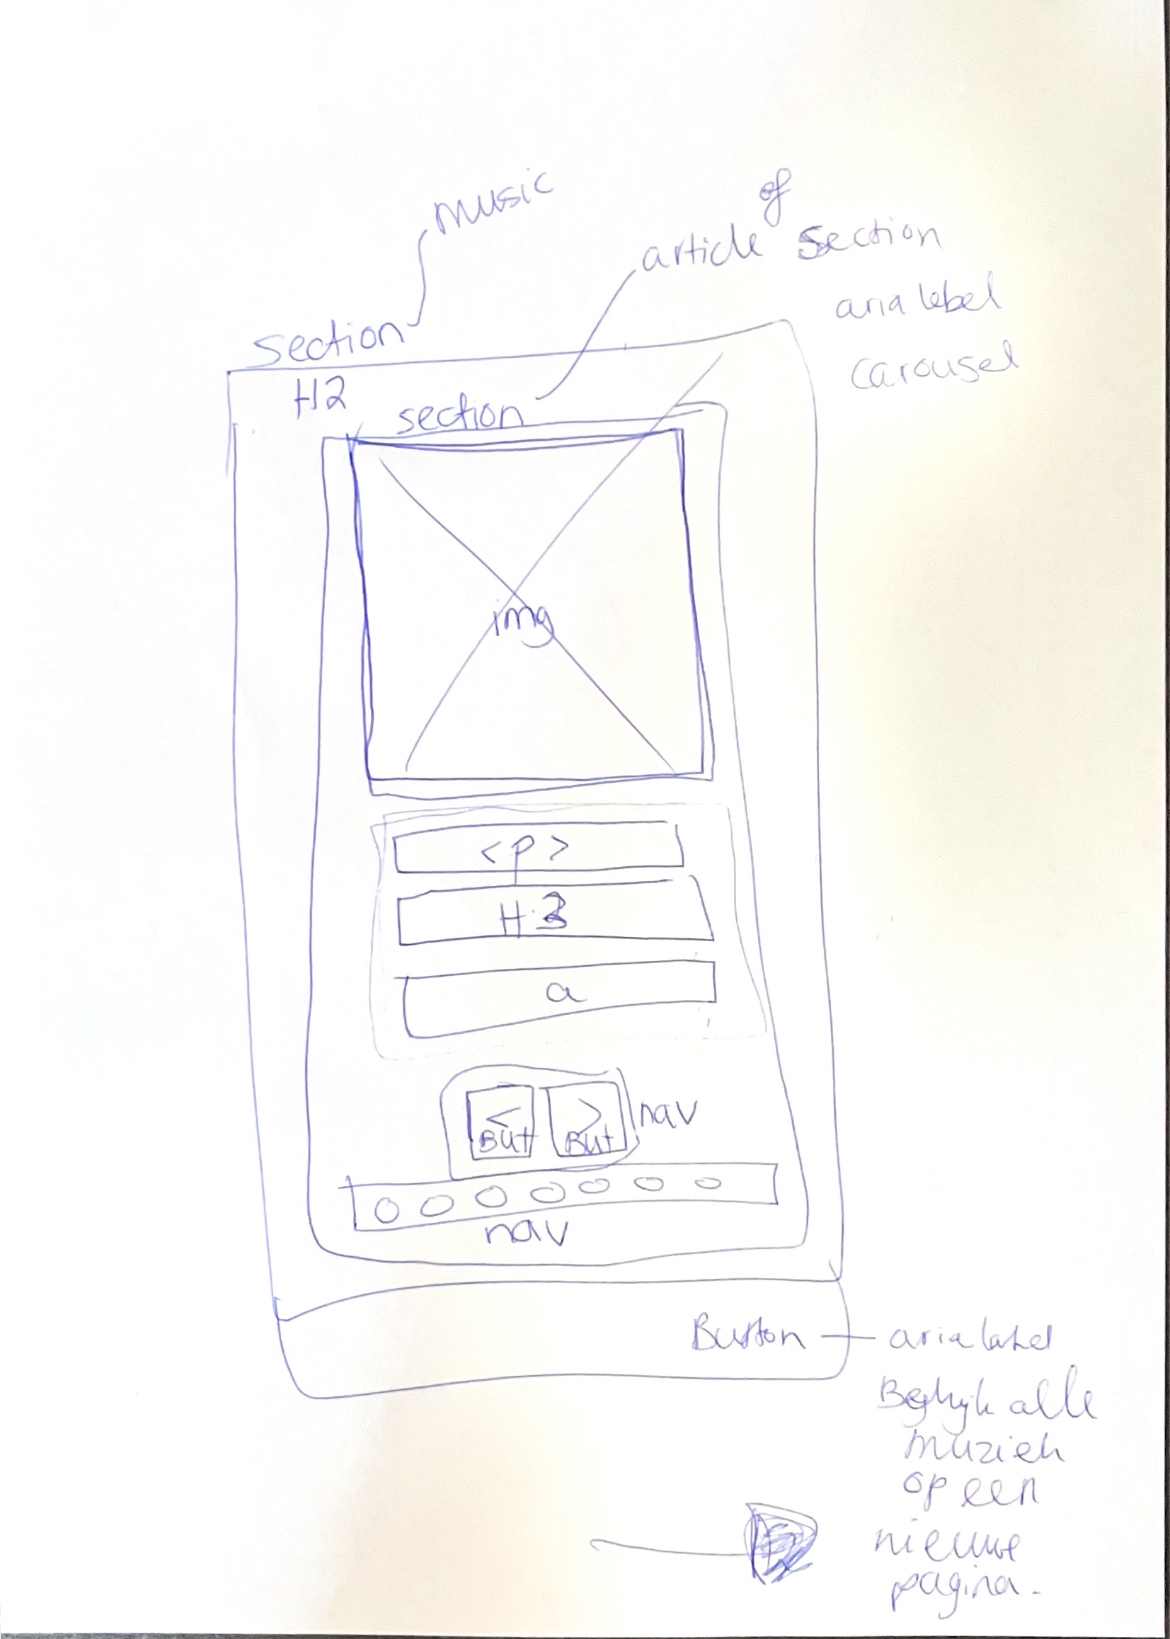 music
of
article section
aria label
carousel
section
H2
section
img
<p>
H3
a
< >
But But
nav
nav
Button
aria label
alle
muziek
op een
nieuwe
pagina.